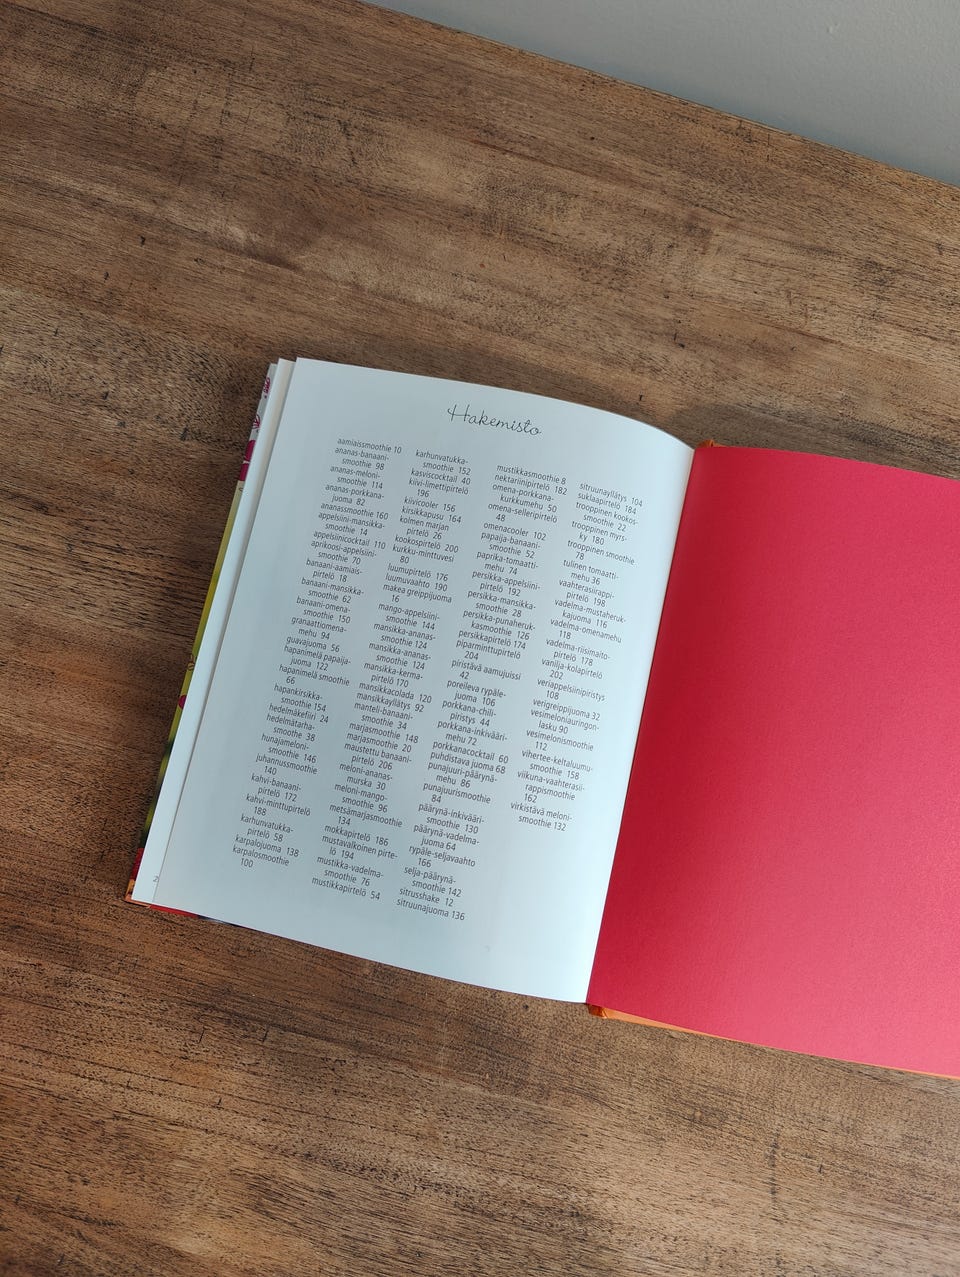 Hakemisto
aamiaissmoothie 10
ananas-banaani-
smoothie 98
ananas-meloni-
smoothie 114
ananas-porkkana-
juoma 82
ananassmoothie 160
appelsiini-mansikka-
smoothie 14
appelsiinicocktail 110
aprikoosi-appelsiini-
smoothie 70
banaani-aamiais-
pirtelö 18
banaani-mansikka-
smoothie 62
banaani-omena-
smoothie 150
granaattiomena-
mehu 94
guavajuoma 56
hapanimelä papaija-
juoma 122
hapanimelä smoothie
66
hapankirsikka-
smoothie 154
hedelmäkefiiri 24
hedelmätarha-
smoothe 38
hunajameloni-
smoothie 146
juhannussmoothie
140
kahvi-banaani-
pirtelö 172
kahvi-minttupirtelö
188
karhunvatukka-
pirtelö 58
karpalojuoma 138
karpalosmoothie
100
karhunvatukka-
smoothie 152
kasviscocktail 40
kiivi-limettipirtelö
196
kiivicooler 156
kirsikkapusu 164
kolmen marjan
pirtelö 26
kookospirtelö 200
kurkku-minttuvesi
80
luumupirtelö 176
luumuvaahto 190
makea greippijuoma
16
mango-appelsiini-
smoothie 144
mansikka-ananas-
smoothie 124
mansikka-ananas-
smoothie 124
mansikka-kerma-
pirtelö 170
mansikkacolada 120
mansikkayllätys 92
manteli-banaani-
smoothie 34
marjasmoothie 148
marjasmoothie 20
maustettu banaani-
pirtelö 206
meloni-ananas-
murska 30
meloni-mango-
smoothie 96
metsämarjasmoothie
134
mokkapirtelö 186
mustavalkoinen pirte-
lö 194
mustikka-vadelma-
smoothie 76
mustikkapirtelö 54
mustikkasmoothie 8
nektariinipirtelö 182
omena-porkkana-
kurkkumehu 50
omena-selleripirtelö
48
omenacooler 102
papaija-banaani-
smoothie 52
paprika-tomaatti-
mehu 74
persikka-appelsiini-
pirtelö 192
persikka-mansikka-
smoothie 28
persikka-punaheruk-
kasmoothie 126
persikkapirtelö 174
piparminttupirtelö
204
piristävä aamujuissi
42
poreileva rypäle-
juoma 106
porkkana-chili-
piristys 44
porkkana-inkivääri-
mehu 72
porkkanacocktail 60
puhdistava juoma 68
punajuuri-päärynä-
mehu 86
punajuurismoothie
84
päärynä-inkivääri-
smoothie 130
päärynä-vadelma-
juoma 64
rypäle-seljavaahto
166
selja-päärynä-
smoothie 142
sitrusshake 12
sitruunajuoma 136
sitruunayllätys 104
suklaapirtelö 184
trooppinen kookos-
smoothie 22
trooppinen myrs-
ky 180
trooppinen smoothie
78
tulinen tomaatti-
mehu 36
vaahterasiirappi-
pirtelö 198
vadelma-mustaheruk-
kajuoma 116
vadelma-omenamehu
118
vadelma-riisimaito-
pirtelö 178
vanilja-kolapirtelö
202
veriappelsiinipiristys
108
verigreippijuoma 32
vesimeloniauringon-
lasku 90
vesimelonismoothie
112
vihertee-keltaluumu-
smoothie 158
viikuna-vaahterasii-
rappismoothie
162
virkistävä meloni-
smoothie 132